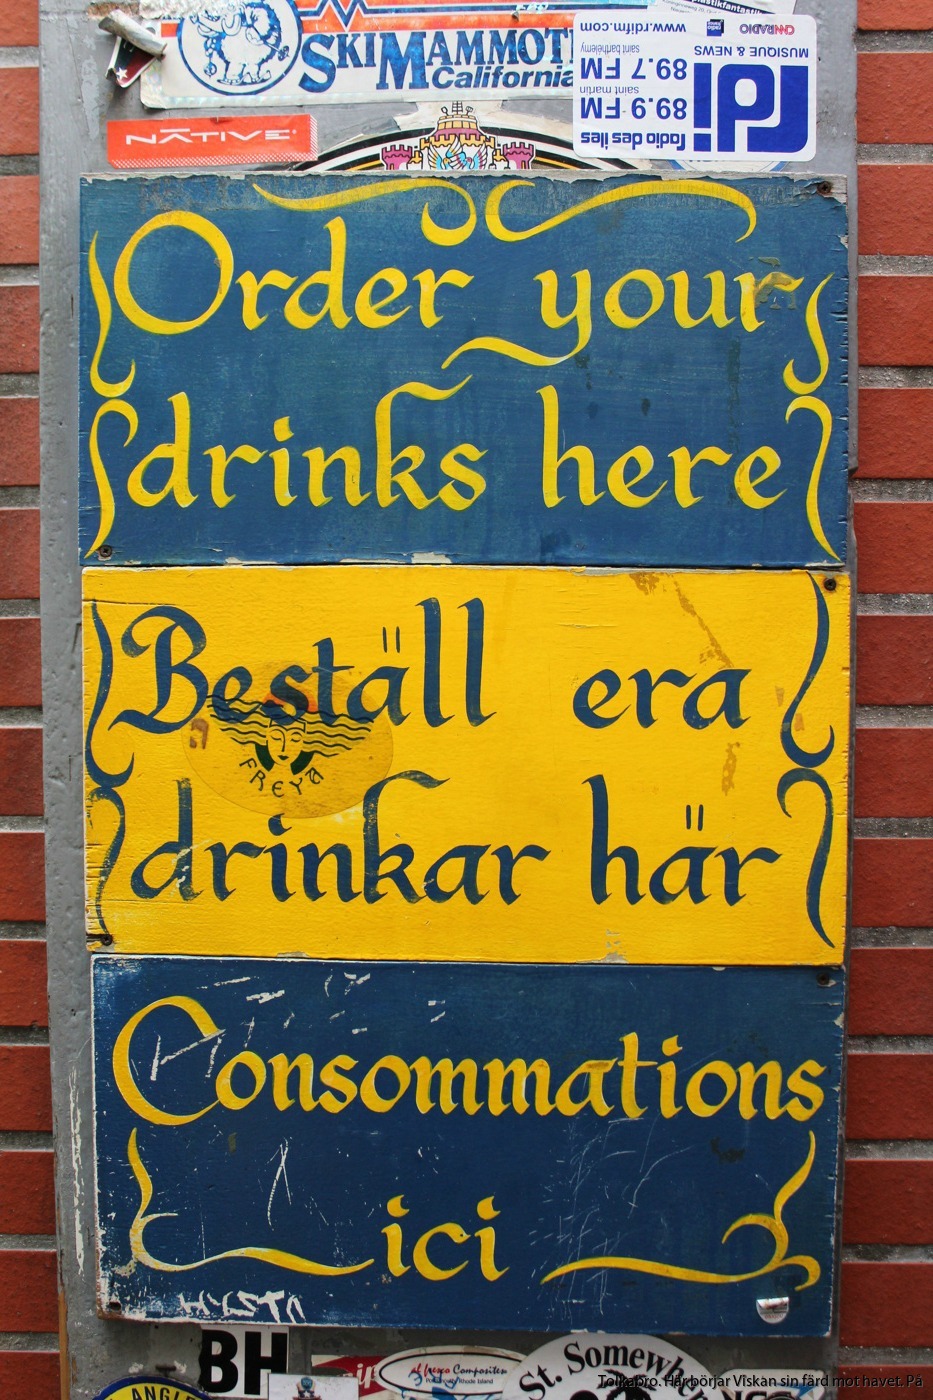 SKI MAMMOTH
California
NATIVE
www.rdifm.com
saint barthelemy
89.7 FM
MUSIQUE & NEWS
saint martin
89.9 FM
radio des iles
rdi
Order your
drinks here
Beställ era
drinkar här
FREYA
Consommations
ici
BH
alfresco Composites
Portsmouth, Rhode Island
St. Somewhere
Tolkabro. Här börjar Viskan sin färd mot havet. På